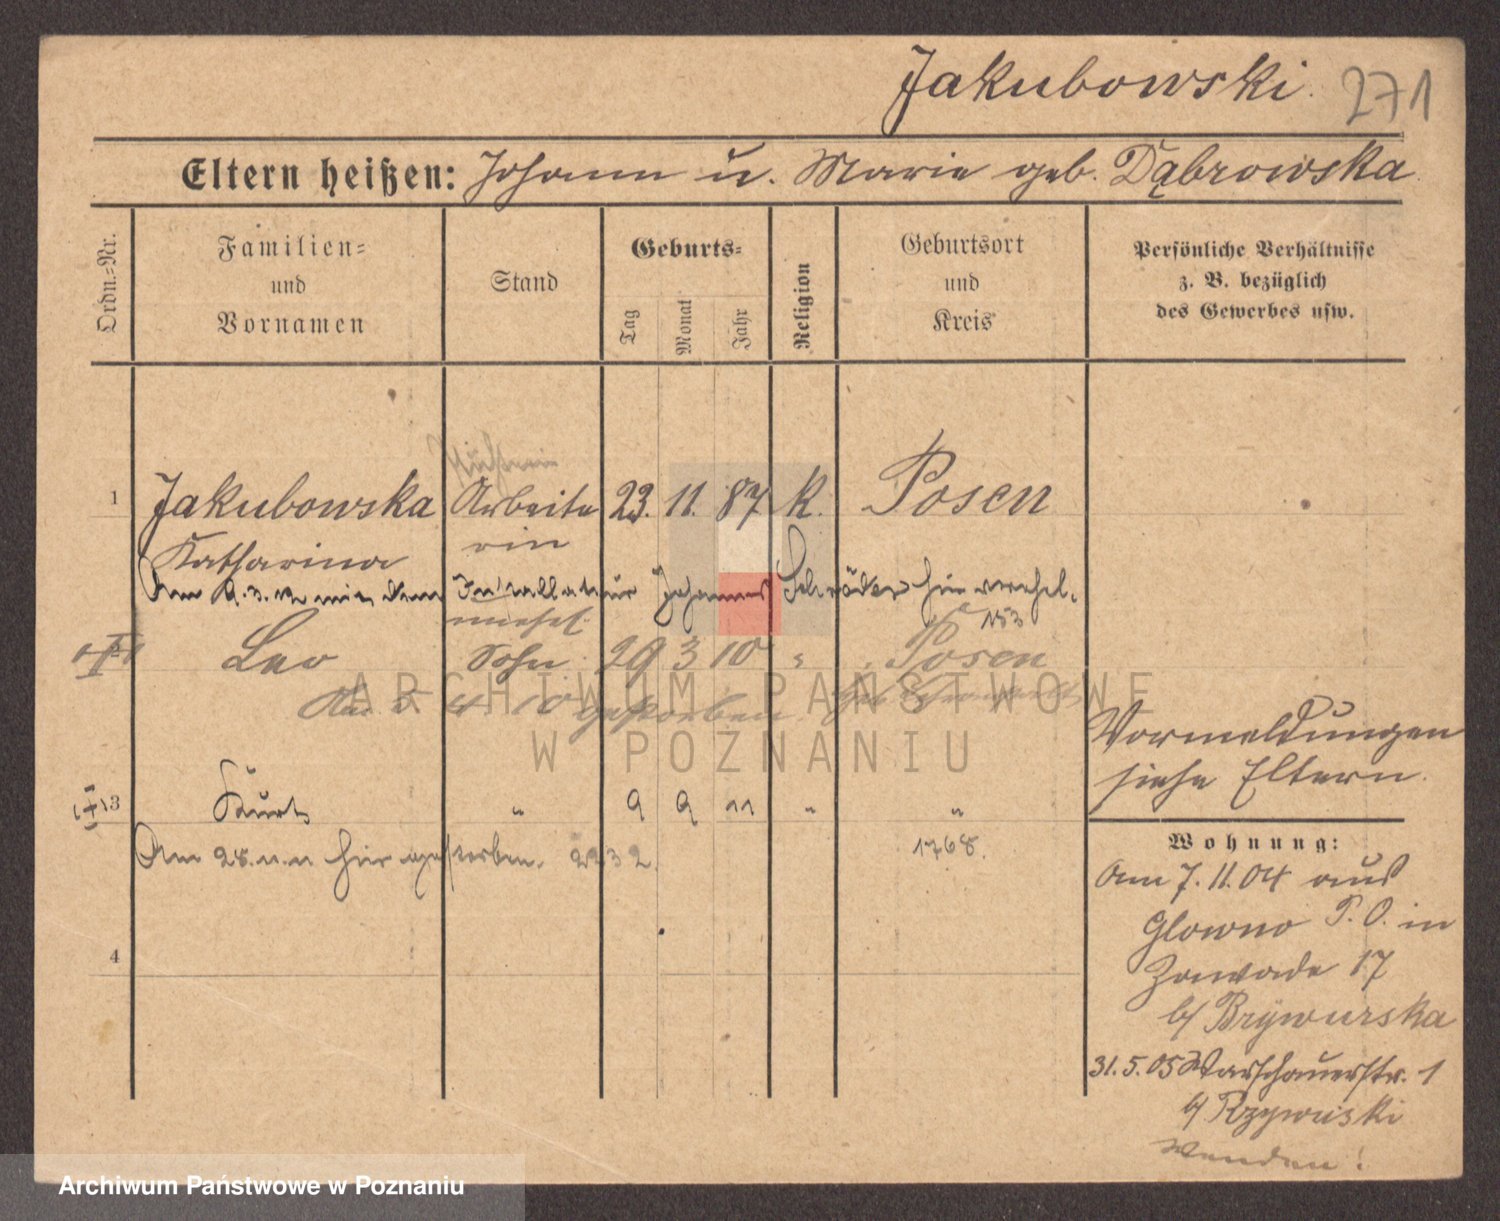 Jakubowski. 271
Eltern heißen: Johann u. Marie geb. Dąbrowska
Ordn.-Nr.
Familien-
und
Vornamen
Stand
Geburts-
Tag
Monat
Jahr
Religion
Geburtsort
und
Kreis
Persönliche Verhältnisse
z. B. bezüglich
des Gewerbes usw.
1 Jakubowska Arbeite 23. 11. 87 k. Posen
Katharina rin
Am mit dem Installateur Johannes Schröder hier verehel.
unehel. 153
Leo Sohn 29 3 10 " Posen
Am 5 4 10 gestorben
Vormeldungen
siehe Eltern.
3 Kurt " 9 9 11 " "
Am 28.11.11 hier gestorben. 2232. 1768.
4
Wohnung:
Am 7.11.04 aus
Glowno P.O. in
Zawade 17
b/ Brzywurska
31.5.05 Warschauerstr. 1
b/ Rzywuski
Wenden!
ARCHIWUM PAŃSTWOWE
W POZNANIU
Archiwum Państwowe w Poznaniu